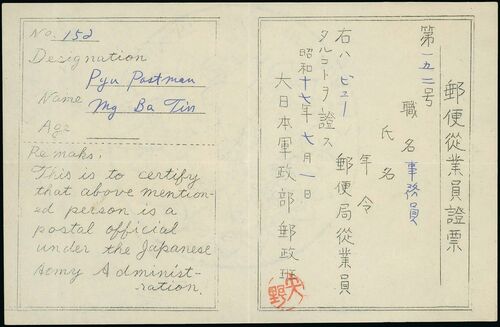 No. 152
Designation
Pyu Postman
Name Mg Ba Tin
Age
Remaks,
This is to certify
that above mention-
ed person is a
postal official
under the Japanese
Army Administ-
ration.
郵便從業員證票
第一五二号
職名 事務員
氏名
年令
右ハ ピュー 郵便局從業員
タルコトヲ證ス
昭和十七年七月一日
大日本軍政部郵政班